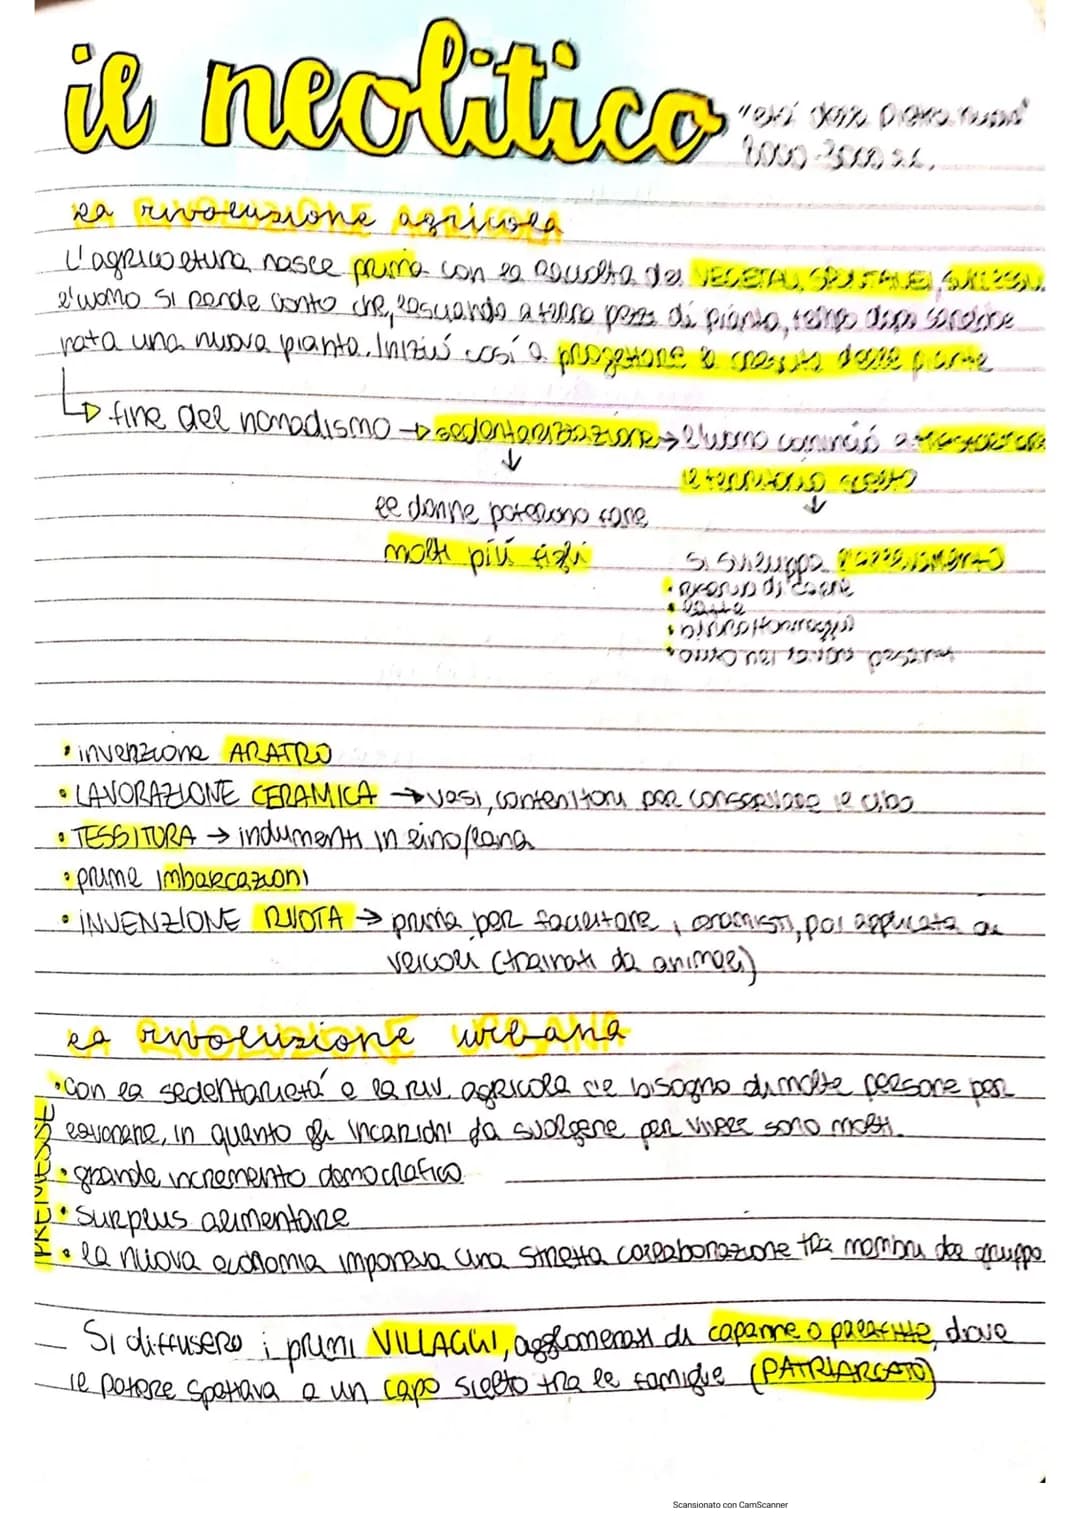 il neolitico
"età della pietra nuova"
8000-3000 a.C.
la rivoluzione agricola
L'agricoltura nasce prima con la raccolta dei VEGETALI SPONTANEI, SUCCESSIV.
l'uomo si rende conto che, lasciando a terra pezzi di pianta, tempo dopo sarebbe
nata una nuova pianta. Iniziò così a progettare la crescita delle piante
fine del nomadismo → sedentarizzazione → l'uomo cominciò a
il territorio scelto
le donne potevano fare
molti più figli
si sviluppa l'allevamento
• di carne
• latte
•
• aiuto nei lavori pesanti
• invenzione ARATRO
• LAVORAZIONE CERAMICA → vasi, contenitori per conservare il cibo
• TESSITURA → indumenti in lino/lana
• prime imbarcazioni
• INVENZIONE RUOTA → prima per facilitare i ceramisti, poi applicata ai
veicoli (trainati da animali)
la rivoluzione urbana
PREMESSE
• Con la sedentarietà e la riv. agricola c'è bisogno di molte persone per
lavorare, in quanto gli incarichi da svolgere per vivere sono molti.
• grande incremento demografico
• surplus alimentare
• la nuova economia imponeva una stretta collaborazione tra membri del gruppo
Si diffusero i primi VILLAGGI, agglomerati di capanne o palafitte, dove
il potere spettava a un capo scelto tra le famiglie (PATRIARCATO)
Scansionato con CamScanner